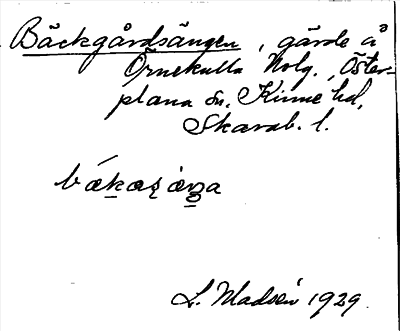 Bäckgårdsängen, gärde å
Örnekulla Nolg., Öster-
plana sn, Kinne hd,
Skarab. l.
bækaʂæŋa
L. Madsén 1929.